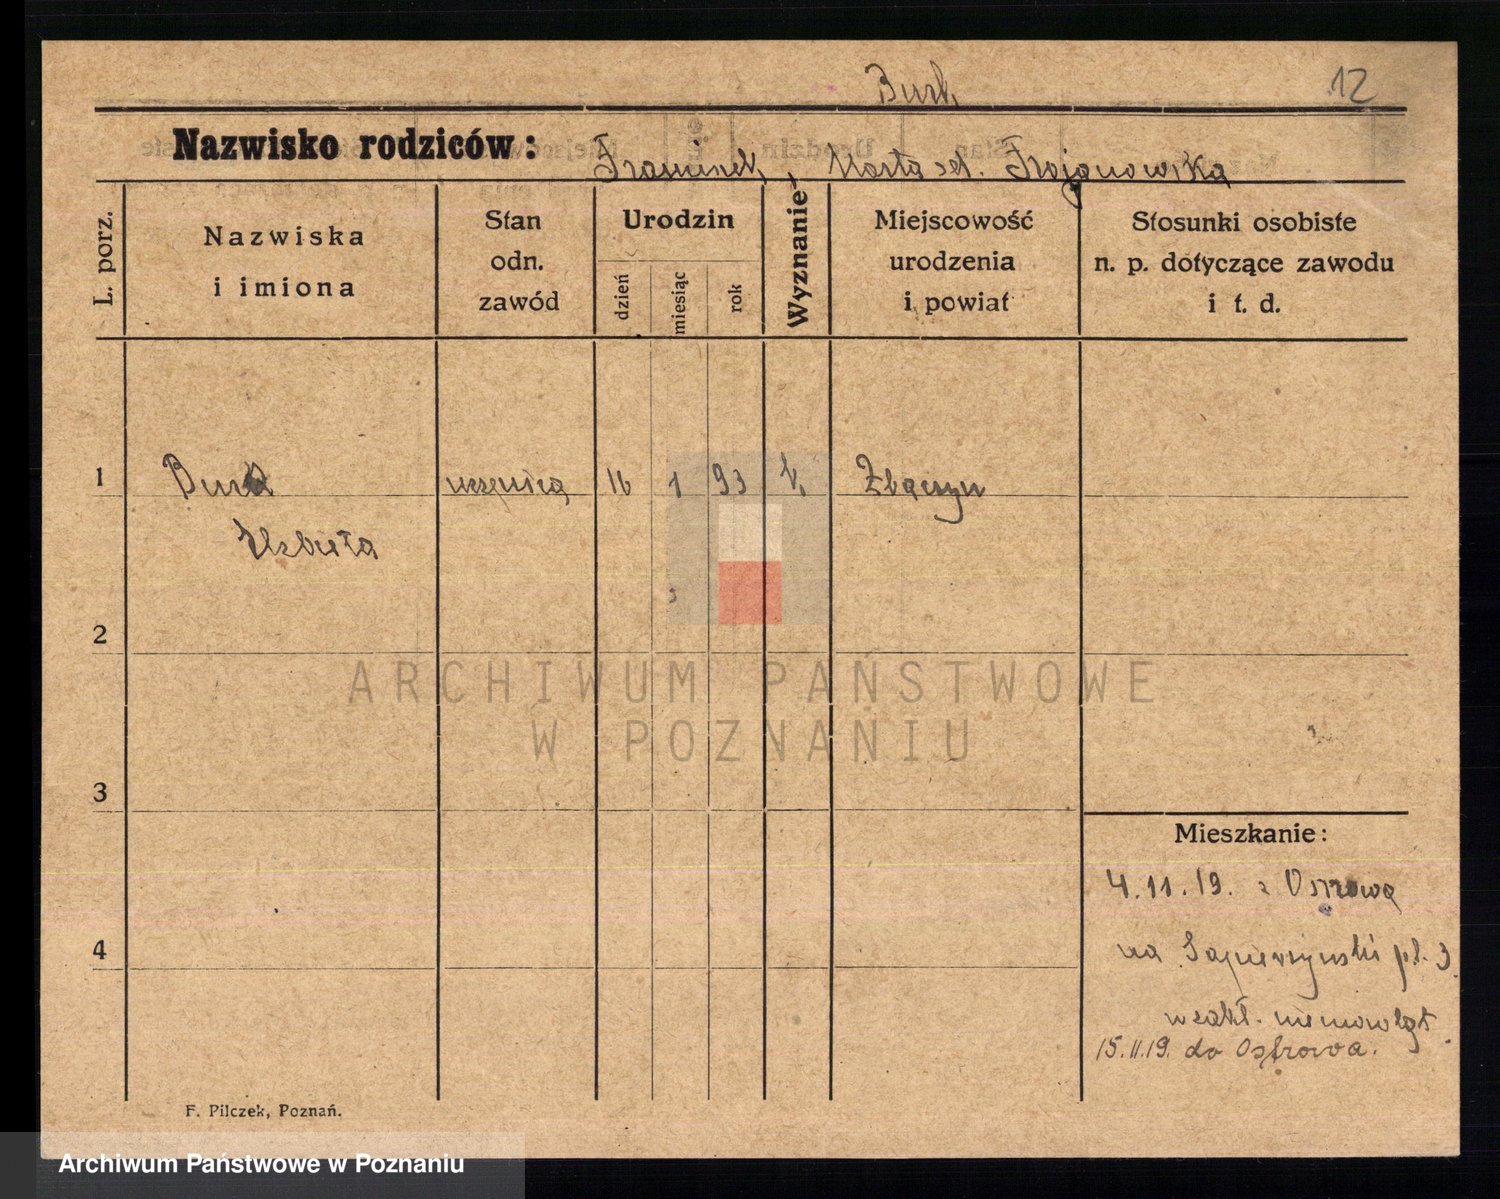 Burk 12
Nazwisko rodziców: Franciszek, Marta ur. Trojanowska
L. porz.
Nazwiska
i imiona
Stan
odn.
zawód
Urodzin
dzień
miesiąc
rok
Wyznanie
Miejscowość
urodzenia
i powiat
Stosunki osobiste
n. p. dotyczące zawodu
i t. d.
1 Burk uczenica 16 1 93 k. Zbąszyn
Elzbieta
2
3
4
Mieszkanie:
4.11.19. z Ostrowa
na Sapierzyński pl. 3.
w zakł. niemowląt.
15.11.19. do Ostrowa.
F. Pilczek, Poznań.
ARCHIWUM PAŃSTWOWE
W POZNANIU
Archiwum Państwowe w Poznaniu